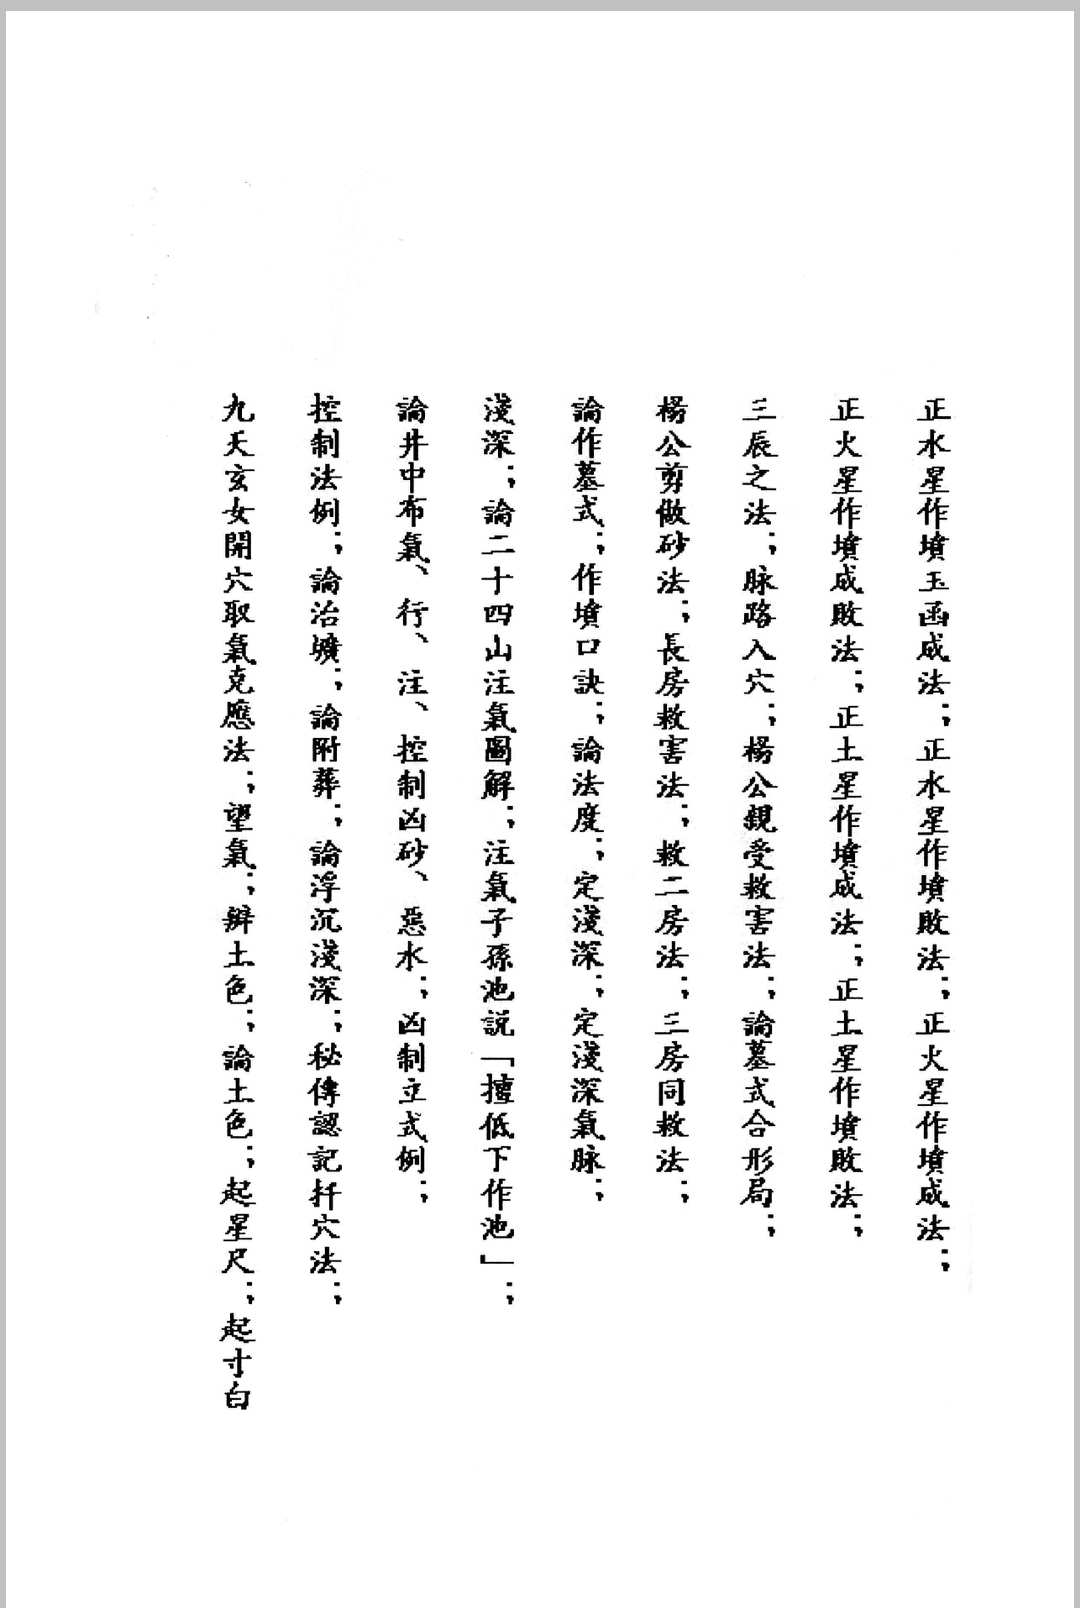 正水星作墳玉函成法；正水星作墳敗法；正火星作墳成法；
正火星作墳成敗法；正土星作墳成法；正土星作墳敗法；
三辰之法；脉路入穴；楊公親受救害法；論墓式合形局；
楊公剪做砂法；長房救害法；救二房法；三房同救法；
論作墓式；作墳口訣；論法度；定淺深；定淺深氣脉；
淺深；論二十四山注氣圖解；注氣子孫池説「擅低下作池」；
論井中布氣、行、注、控制凶砂、惡水；凶制立式例；
控制法例；論治壙；論附葬；論浮沉淺深；秘傳認記扦穴法；
九天玄女開穴取氣克應法；望氣；辯土色；論土色；起星尺；起寸白